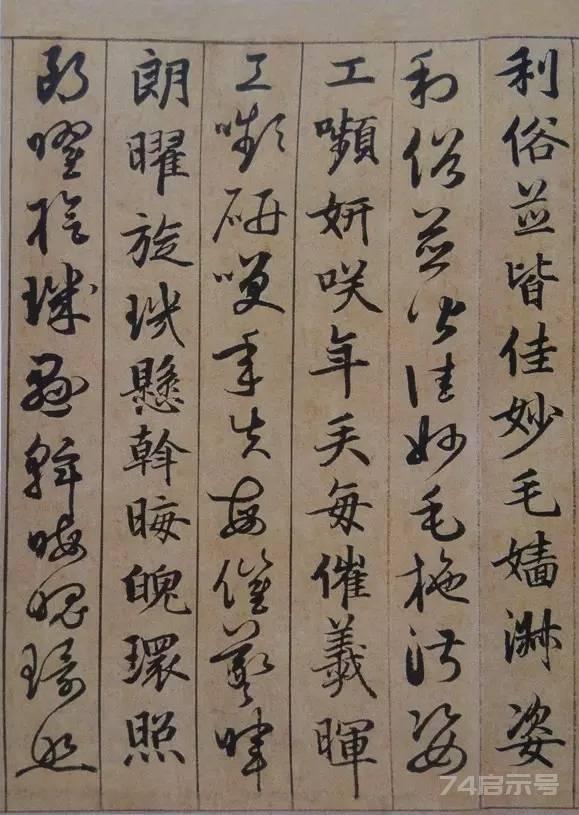 利俗並皆佳妙毛嬙淑姿
利俗並皆佳妙毛施淑姿
工嚬妍咲年矢每催義暉
工嚬研咲年矢每催羲暉
朗曜旋璣懸斡晦魄環照
朗曜旋璣懸斡晦魄環照
74启示号